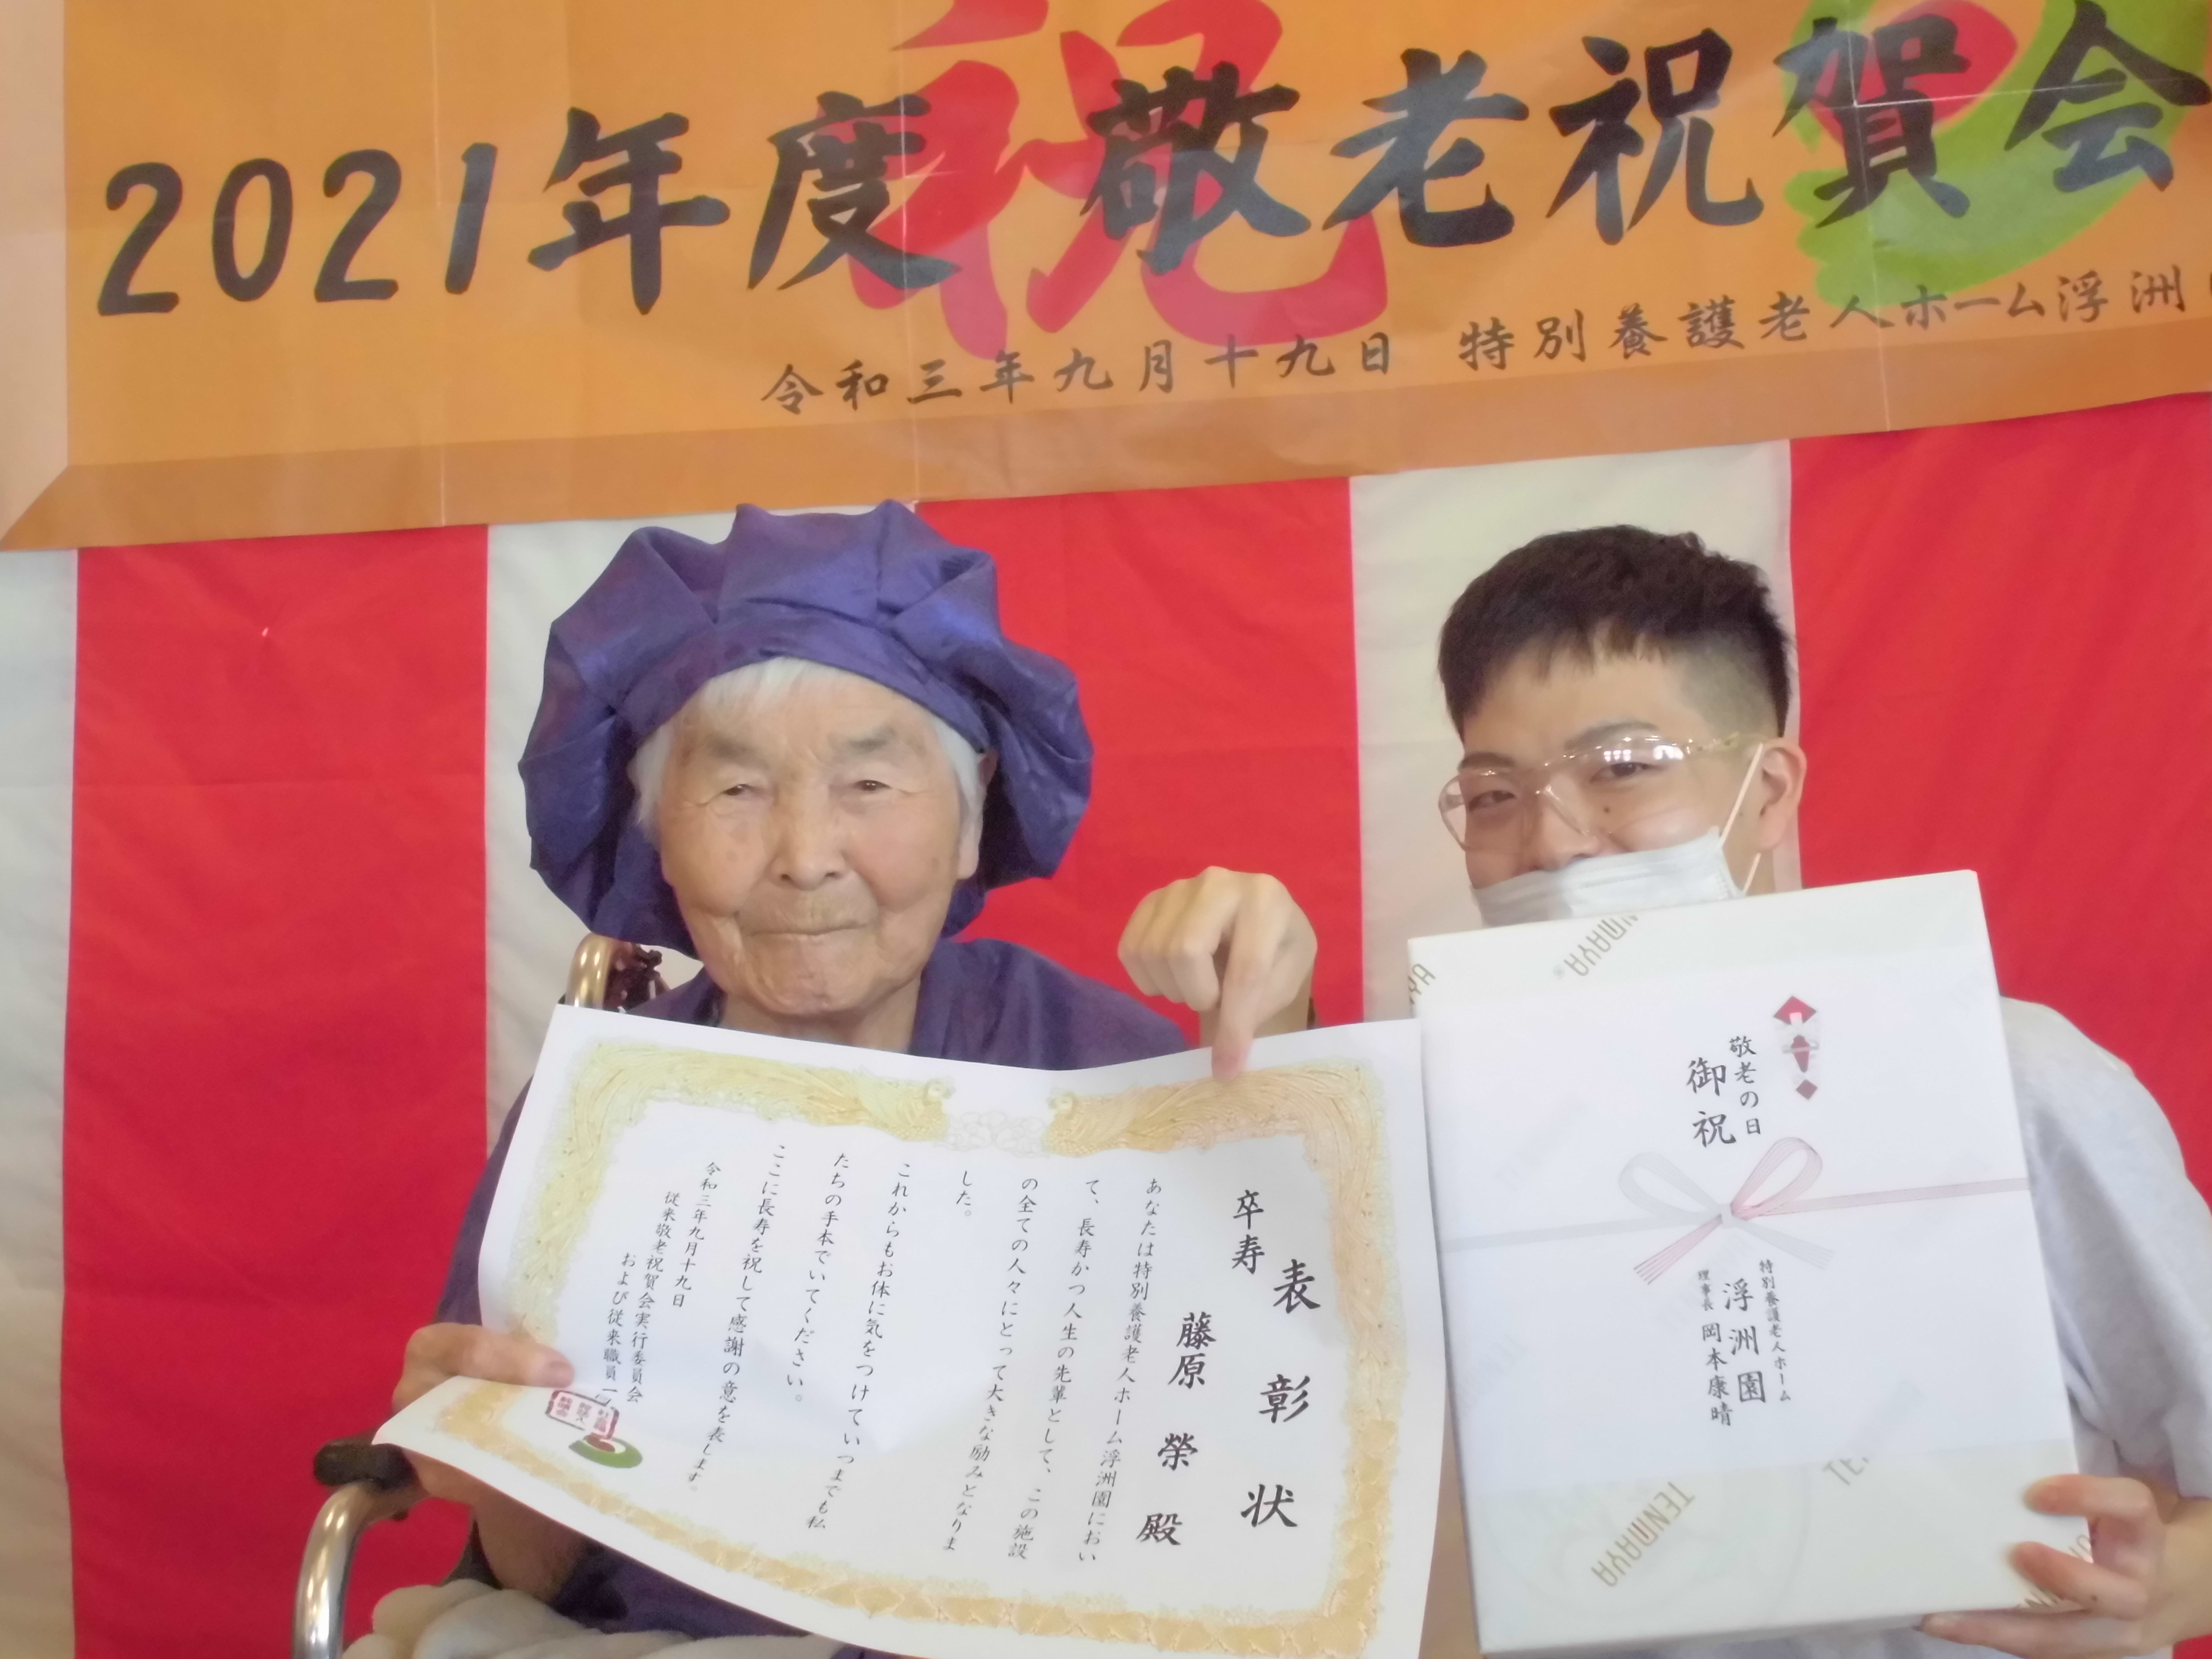 祝
2021年度 敬老祝賀会
令和三年九月十九日 特別養護老人ホーム浮洲
表彰状
卒寿
藤原 榮 殿
あなたは特別養護老人ホーム浮洲園におい
て、長寿かつ人生の先輩として、この施設
の全ての人々にとって大きな励みとなりま
した。
これからもお体に気をつけていつまでも私
たちの手本でいてください。
ここに長寿を祝して感謝の意を表します。
令和三年九月十九日
従来敬老祝賀会実行委員会
および従来職員一同
敬老の日
御祝
特別養護老人ホーム
浮洲園
理事長 岡本康晴
TENMAYA
TENMAYA